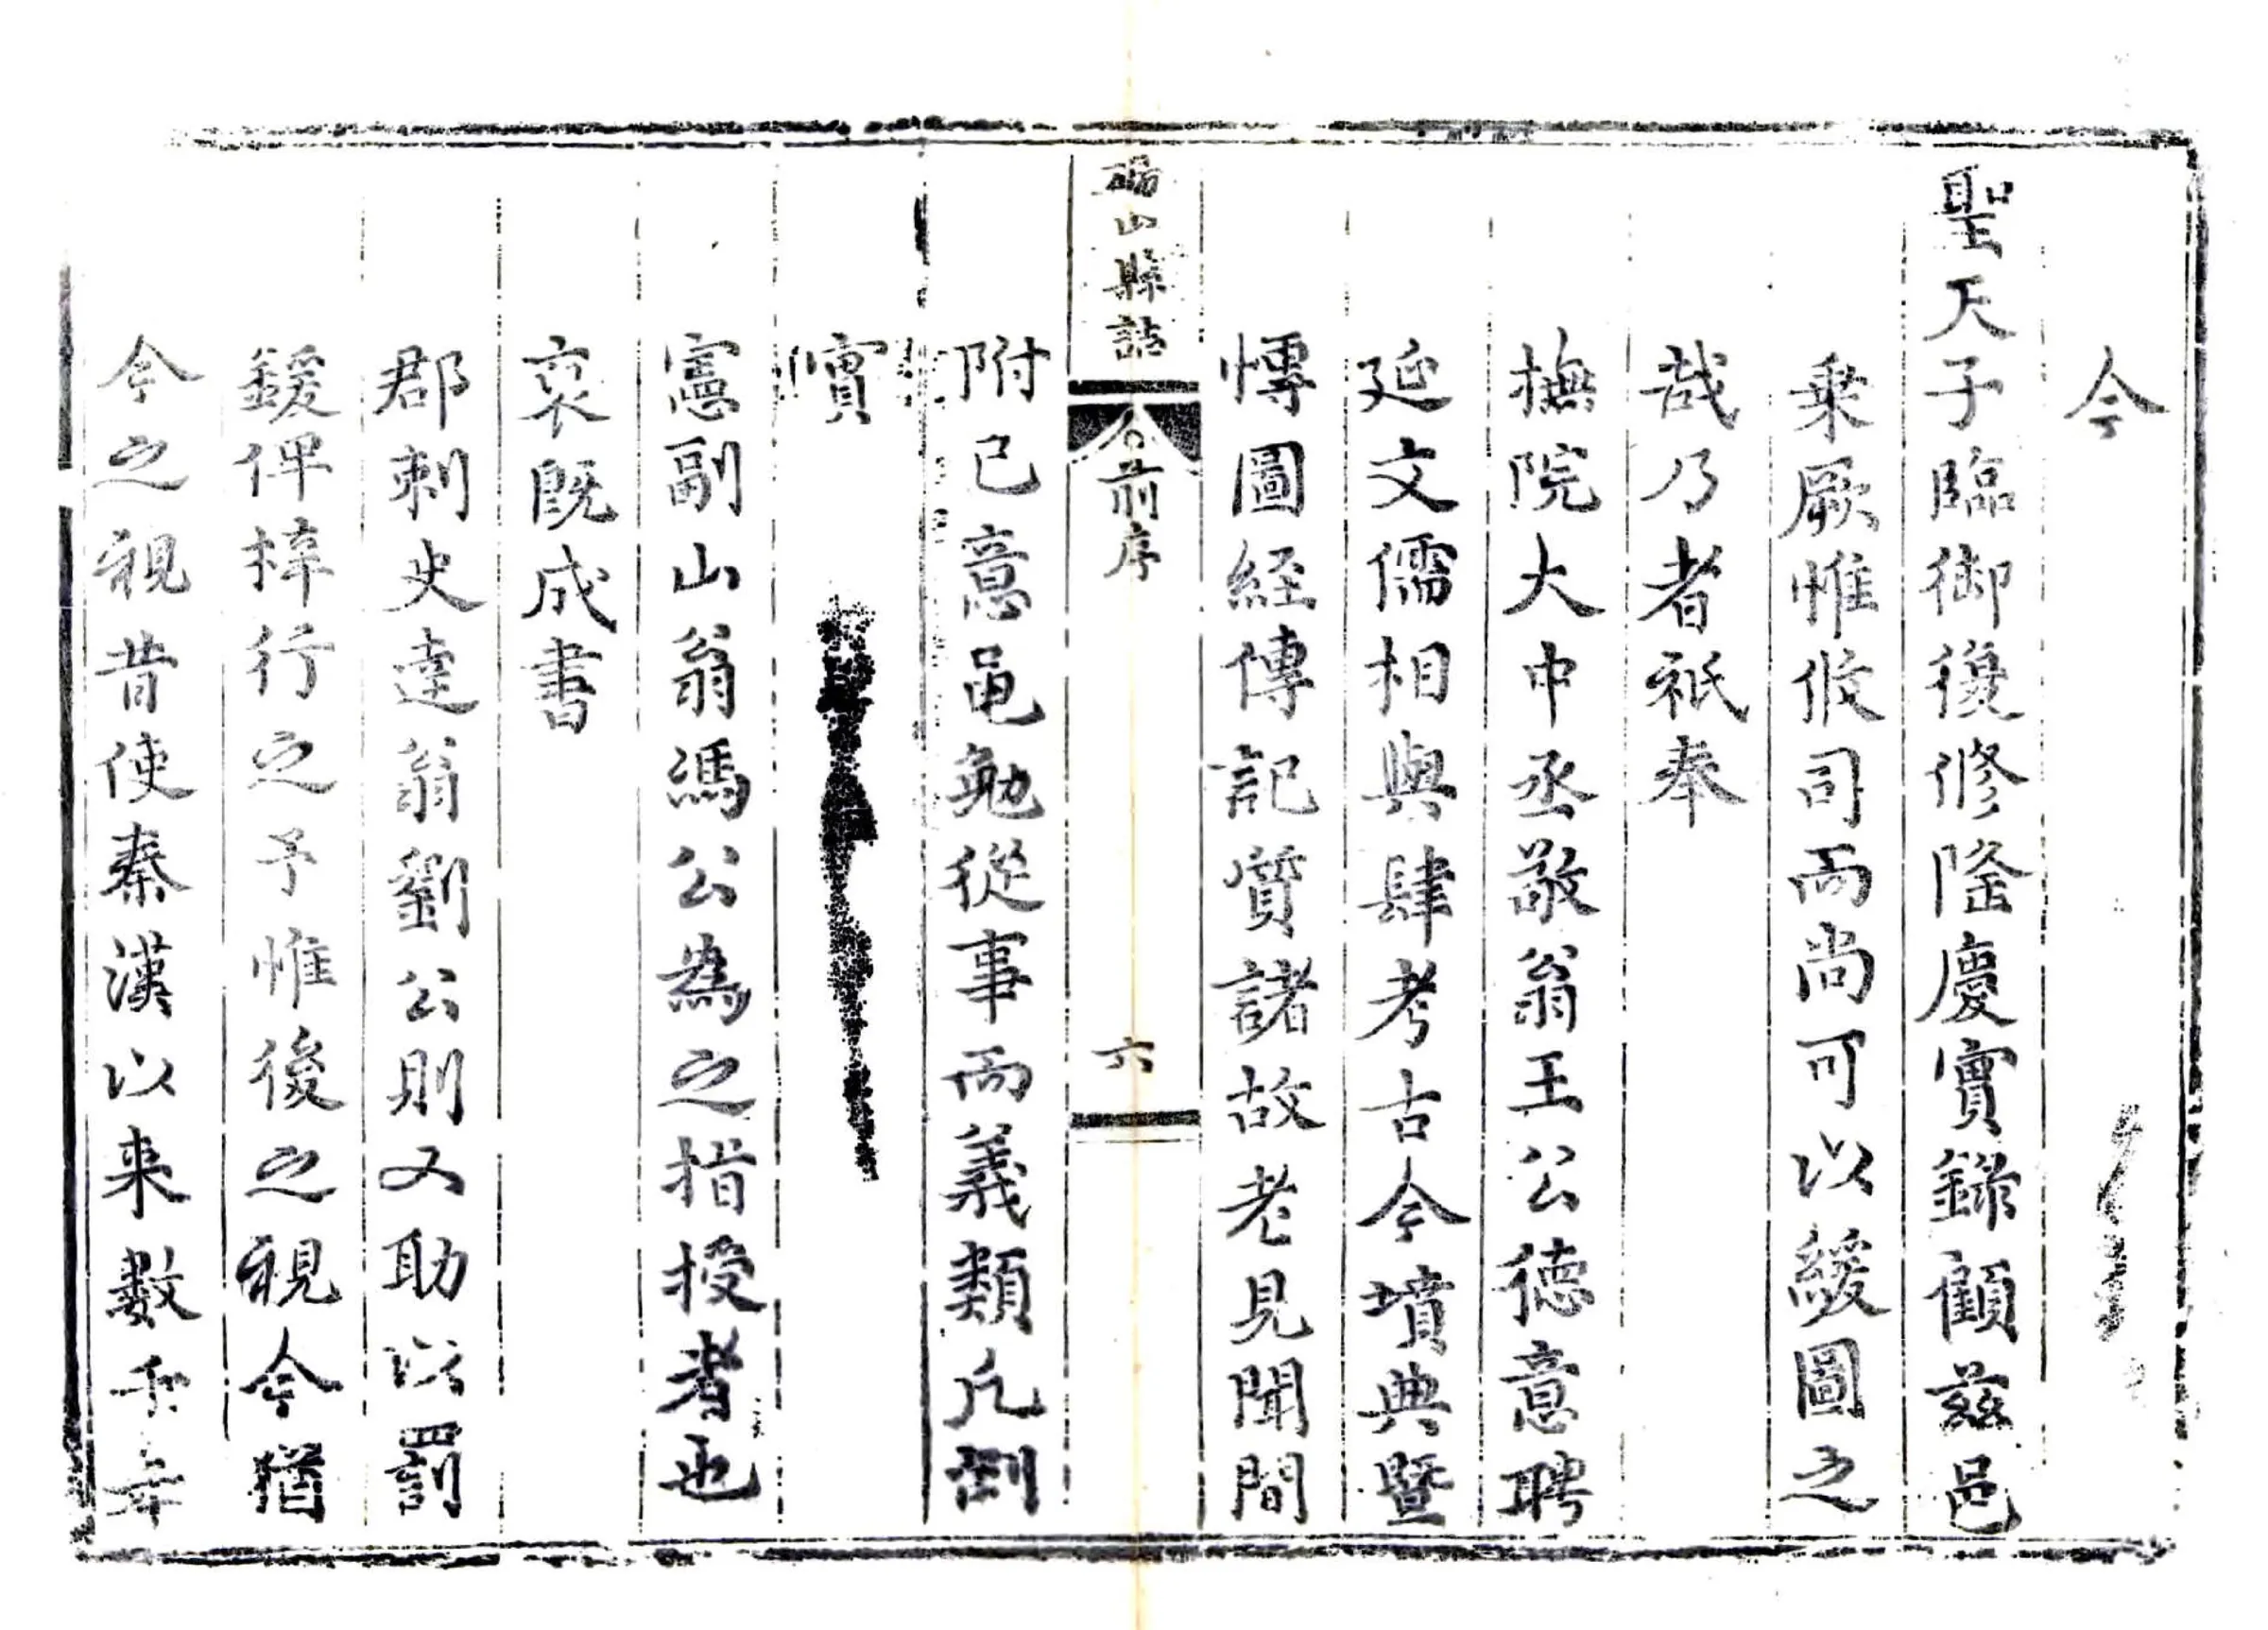 今
聖天子臨御復修隆慶實録顧茲邑
乗厥惟攸司而尚可以緩圖之
哉乃者祇奉
撫院大中丞敬翁王公德意聘
延文儒相與肆考古今墳典暨
慱圖經傳記質諸故老見聞間
附已意黽勉從事而義類凡例
碭山縣誌
前序
六
實
憲副山翁馮公為之指授者也
裒既成書
郡刺史達翁劉公則又助以罰
鍰俾梓行之予惟後之視今猶
今之視昔使秦漢以来數千年